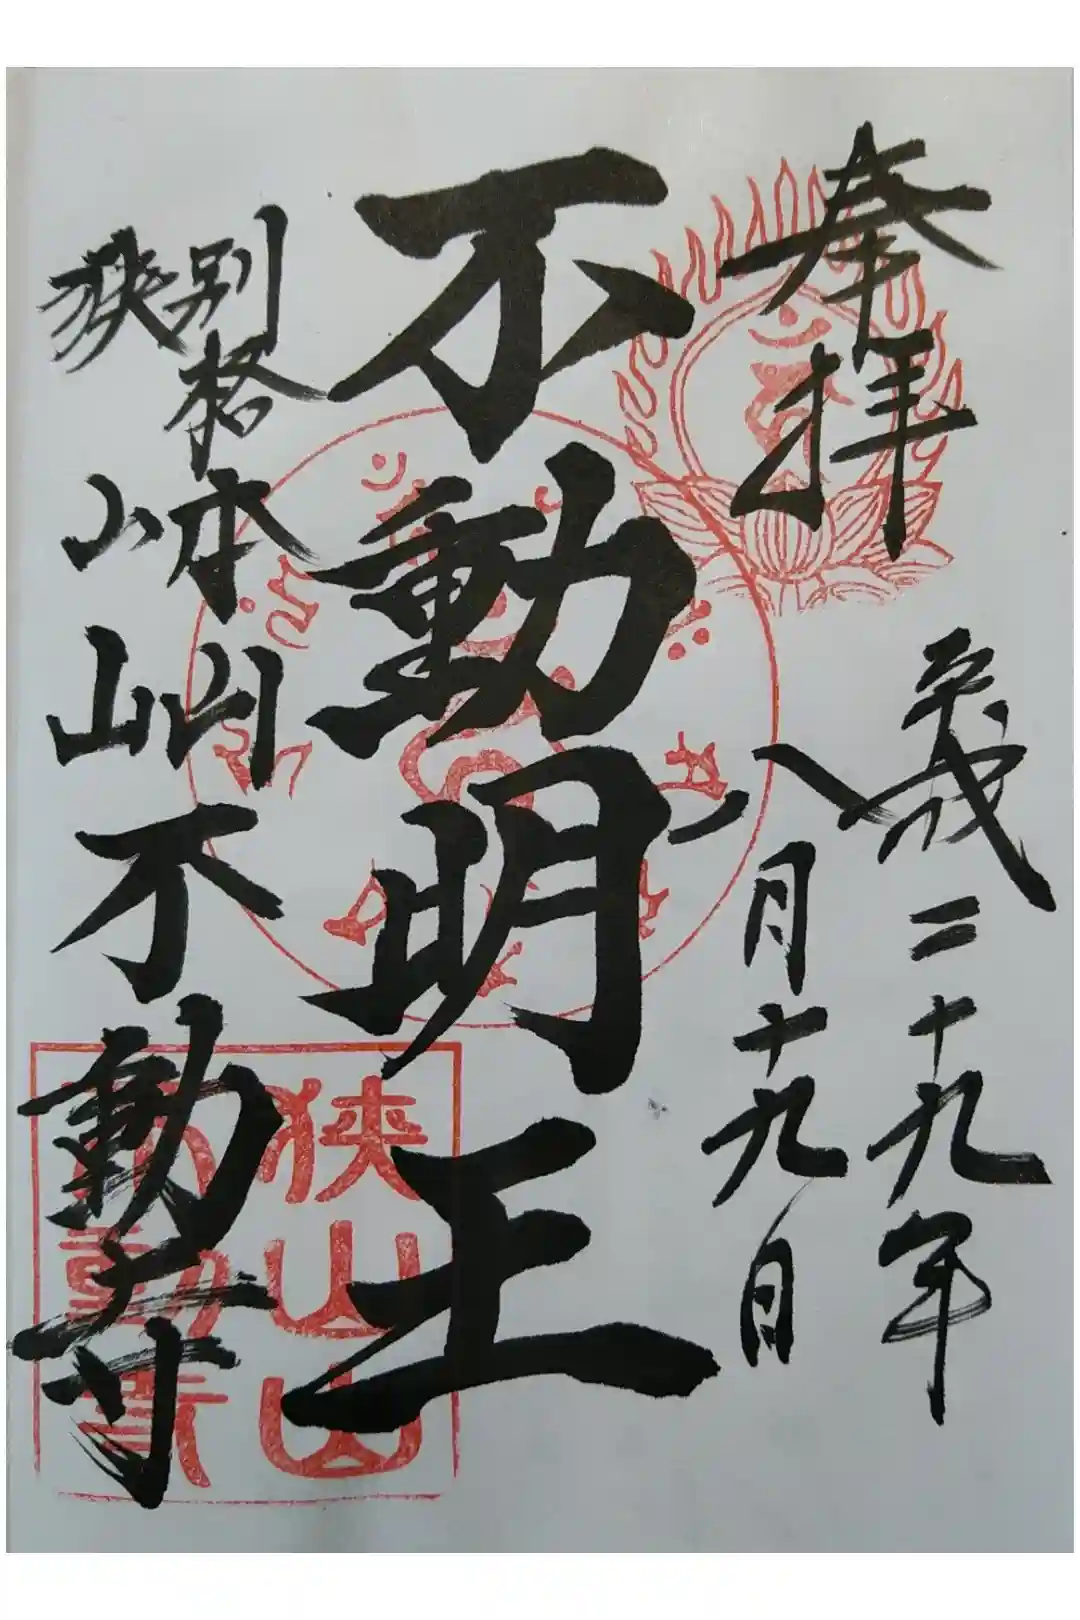 奉拝
平成二十九年
八月十九日
不動明王
別格本山
狭山山不動寺
狭山山
不動寺